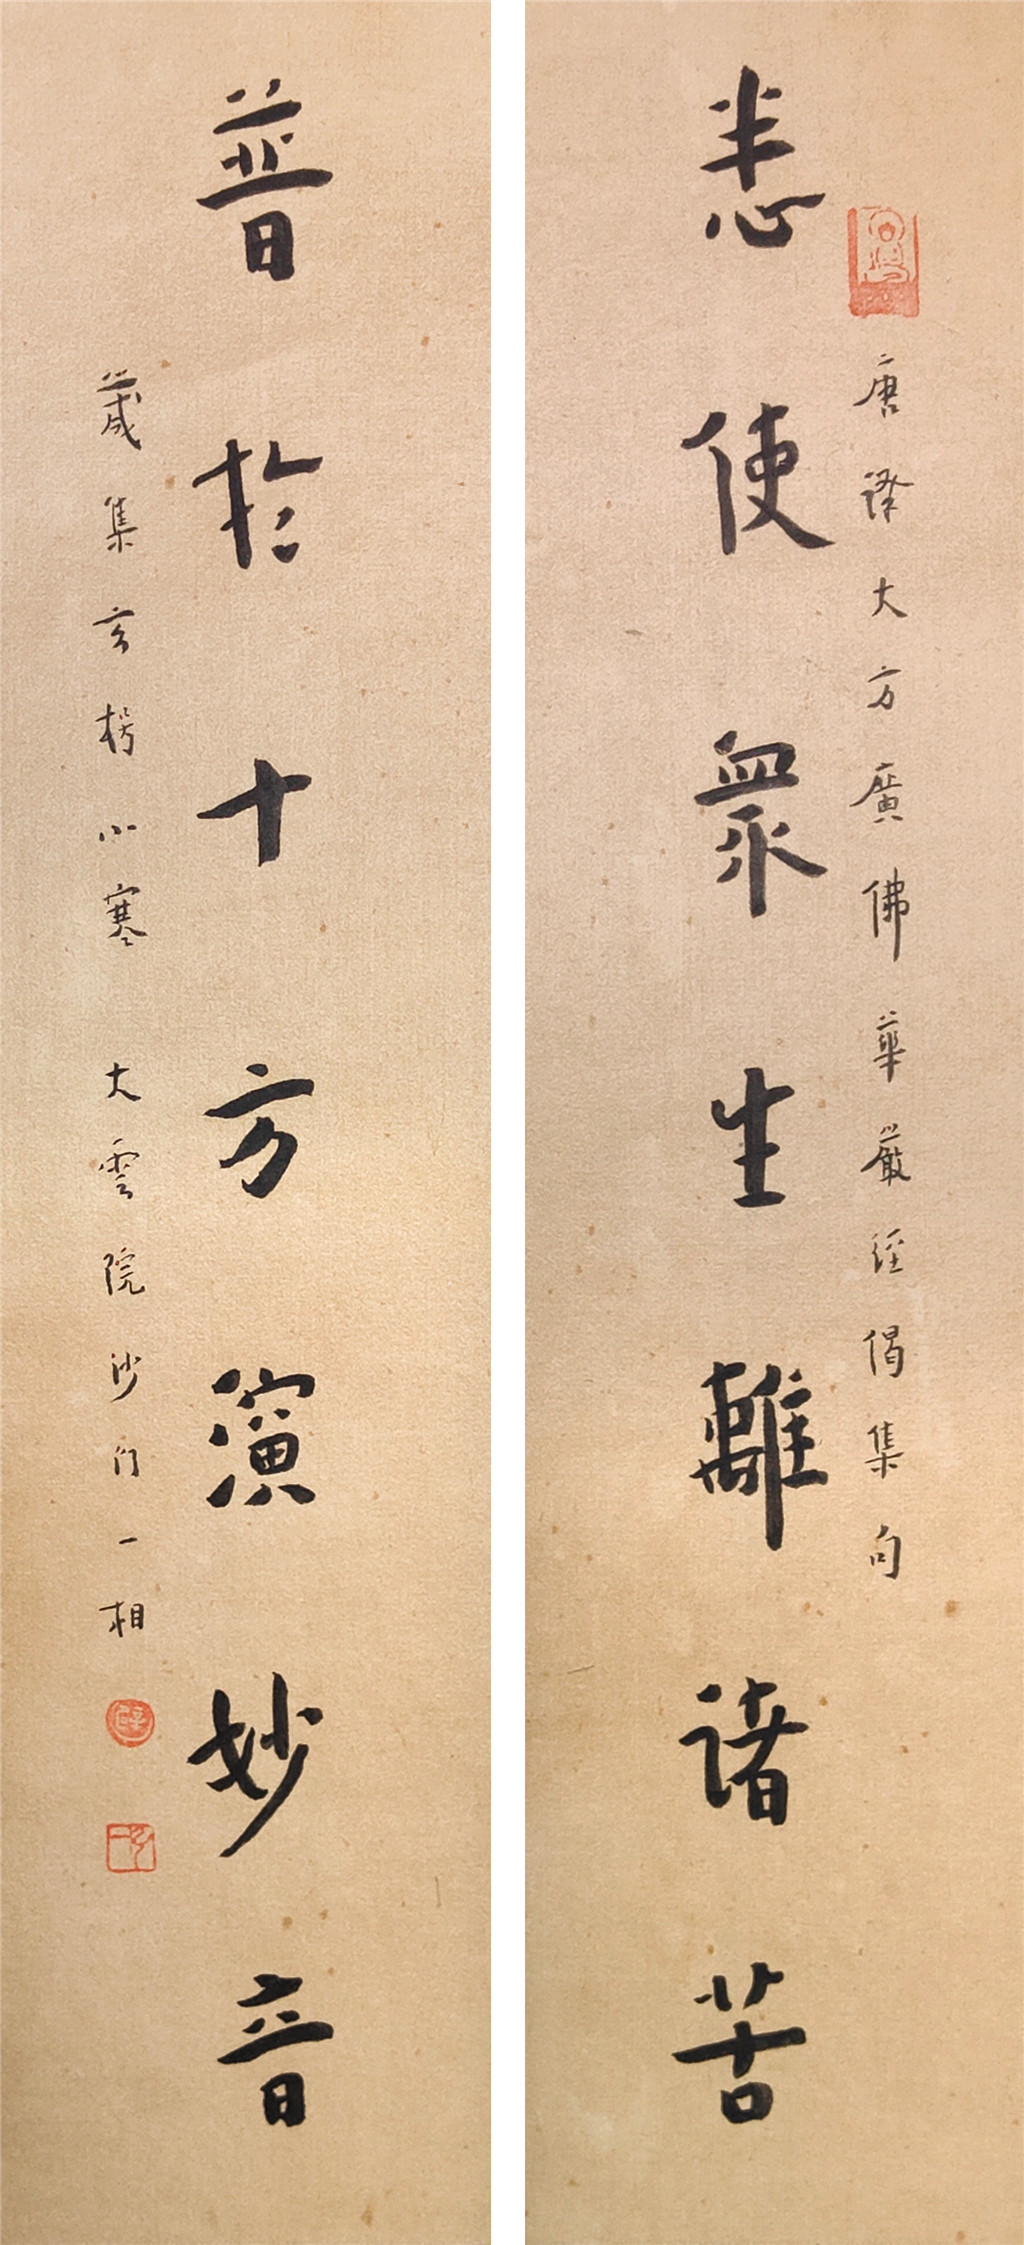 唐譯大方廣佛華嚴經偈集句
悉使眾生離諸苦
普於十方演妙音
歲集玄枵小寒 大雲院沙门一相